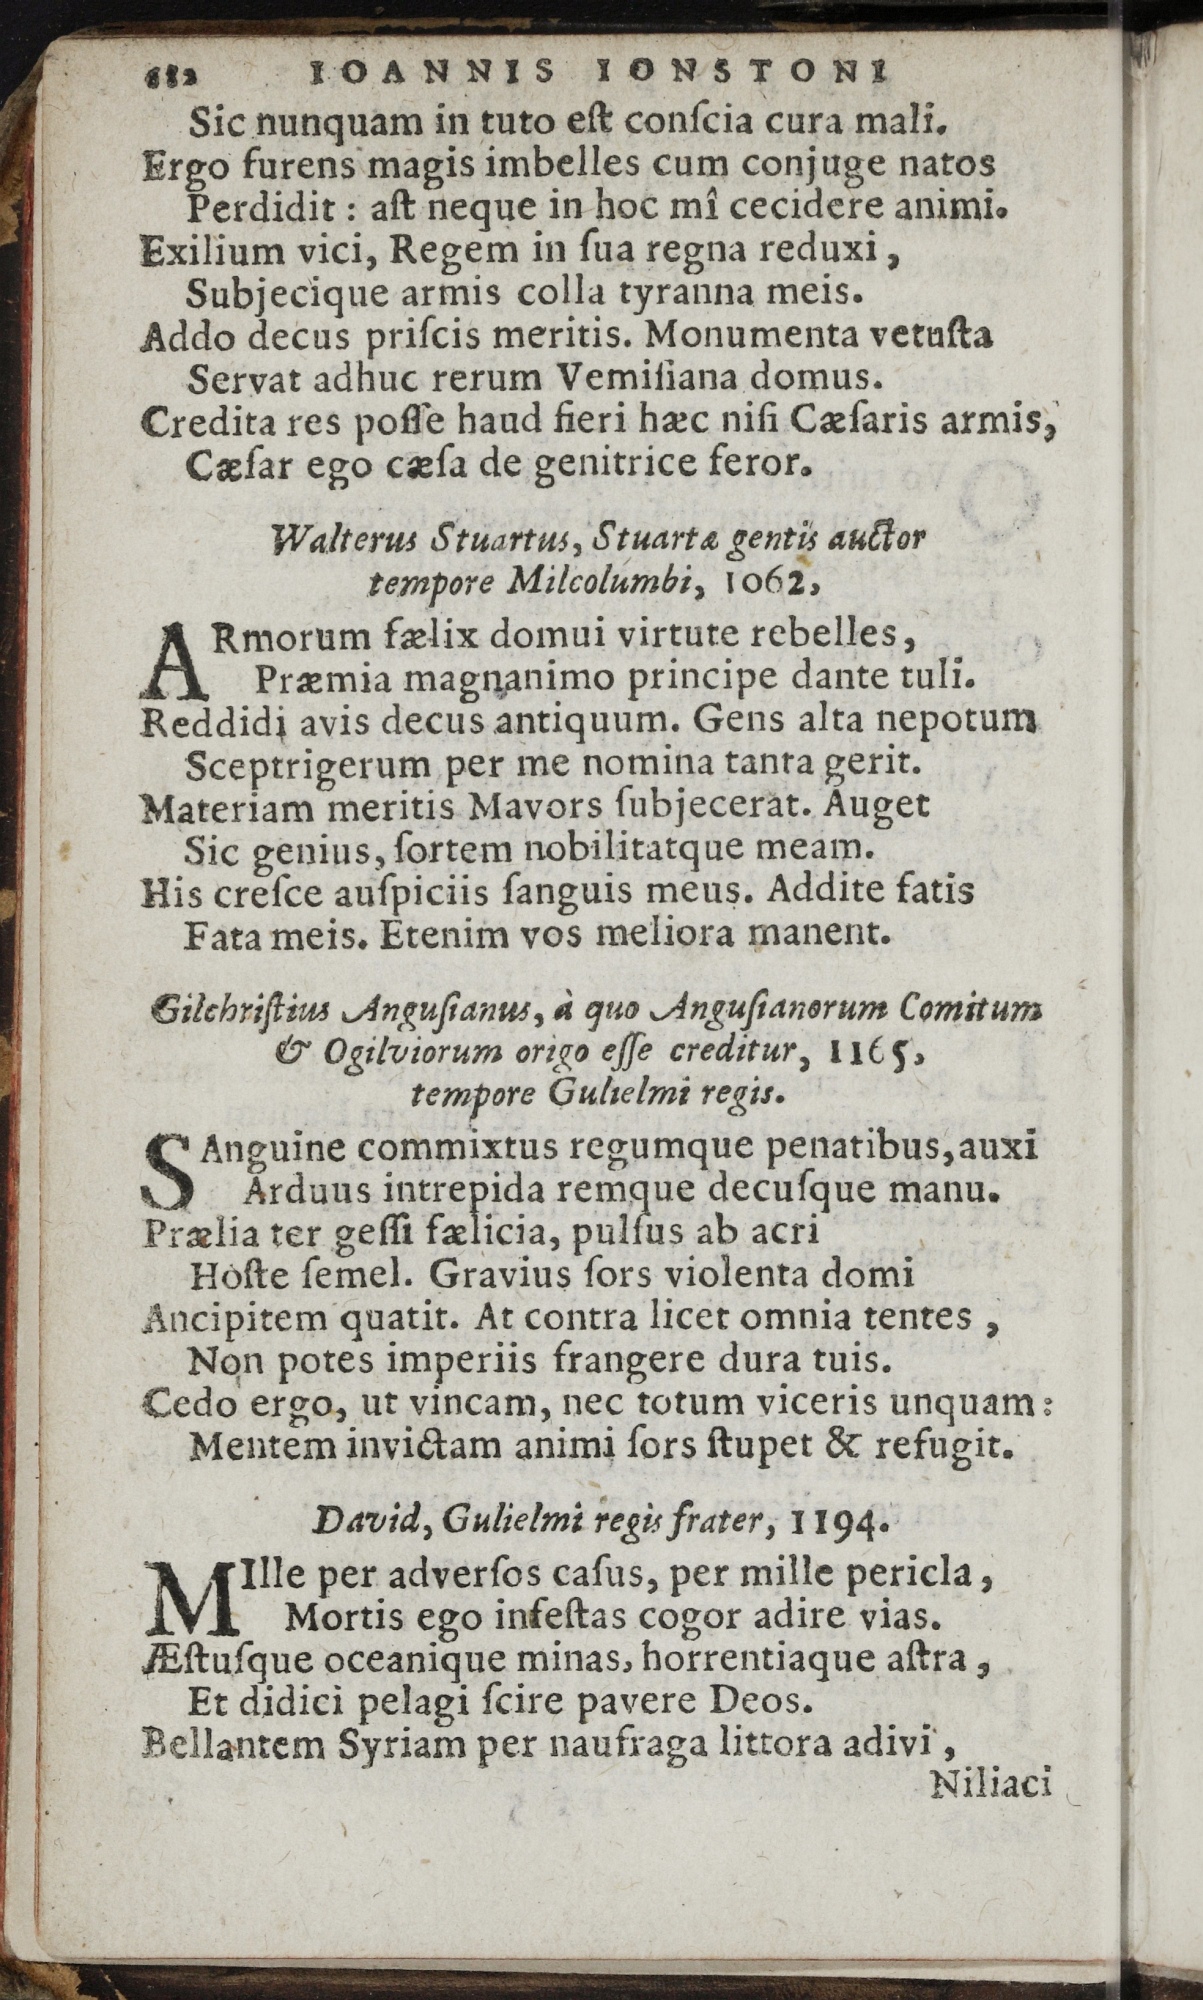 682 IOANNIS IONSTONI
Sic nunquam in tuto eſt conſcia cura mali.
Ergo furens magis imbelles cum conjuge natos
Perdidit : aſt neque in hoc mî cecidere animi.
Exilium vici, Regem in ſua regna reduxi ,
Subjecique armis colla tyranna meis.
Addo decus priſcis meritis. Monumenta vetuſta
Servat adhuc rerum Vemiſiana domus.
Credita res poſſe haud fieri hæc niſi Cæſaris armis,
Cæſar ego cæſa de genitrice feror.
Walterus Stuartus, Stuartæ gentis auctor
tempore Milcolumbi, 1062,
ARmorum fælix domui virtute rebelles,
Præmia magnanimo principe dante tuli.
Reddidi avis decus antiquum. Gens alta nepotum
Sceptrigerum per me nomina tanta gerit.
Materiam meritis Mavors ſubjecerat. Auget
Sic genius, ſortem nobilitatque meam.
His creſce auſpiciis ſanguis meus. Addite fatis
Fata meis. Etenim vos meliora manent.
Gilchriſtius Anguſianus, à quo Anguſianorum Comitum
& Ogilviorum origo eſſe creditur, 1165,
tempore Gulielmi regis.
SAnguine commixtus regumque penatibus, auxi
Arduus intrepida remque decuſque manu.
Prælia ter geſſi fælicia, pulſus ab acri
Hoſte ſemel. Gravius ſors violenta domi
Ancipitem quatit. At contra licet omnia tentes ,
Non potes imperiis frangere dura tuis.
Cedo ergo, ut vincam, nec totum viceris unquam :
Mentem invictam animi ſors ſtupet & refugit.
David, Gulielmi regis frater, 1194.
MIlle per adverſos caſus, per mille pericla ,
Mortis ego infeſtas cogor adire vias.
Æſtuſque oceanique minas, horrentiaque aſtra ,
Et didici pelagi ſcire pavere Deos.
Bellantem Syriam per naufraga littora adivi ,
Niliaci